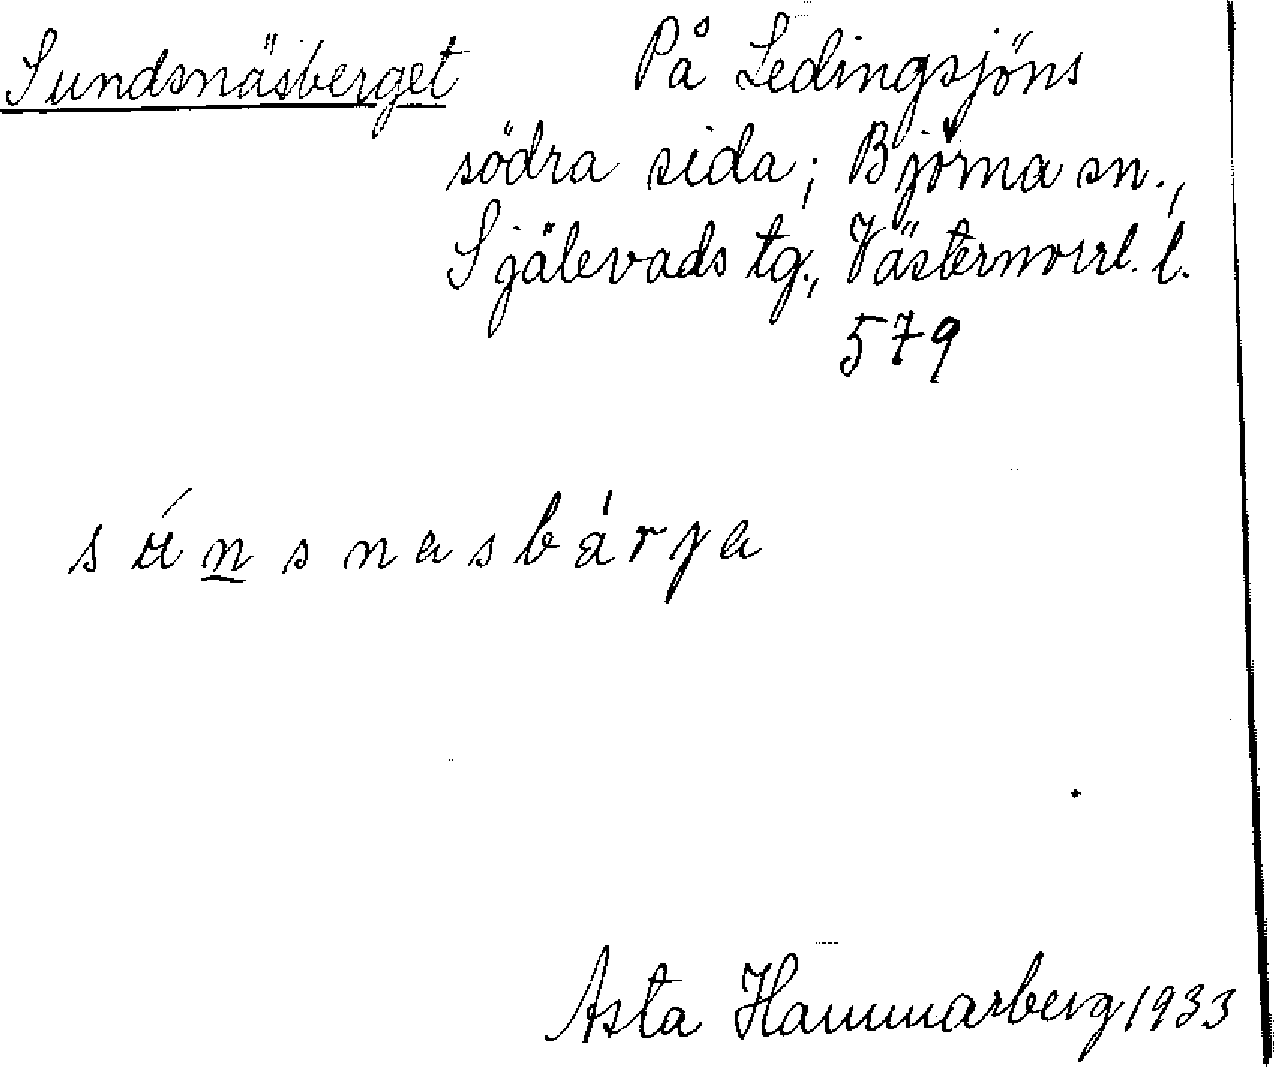 Sundsnäsberget På Ledingsjöns
södra sida; Björna sn.,
Själevads tg., Västernorrl. l.
579
Asta Hammarberg 1933